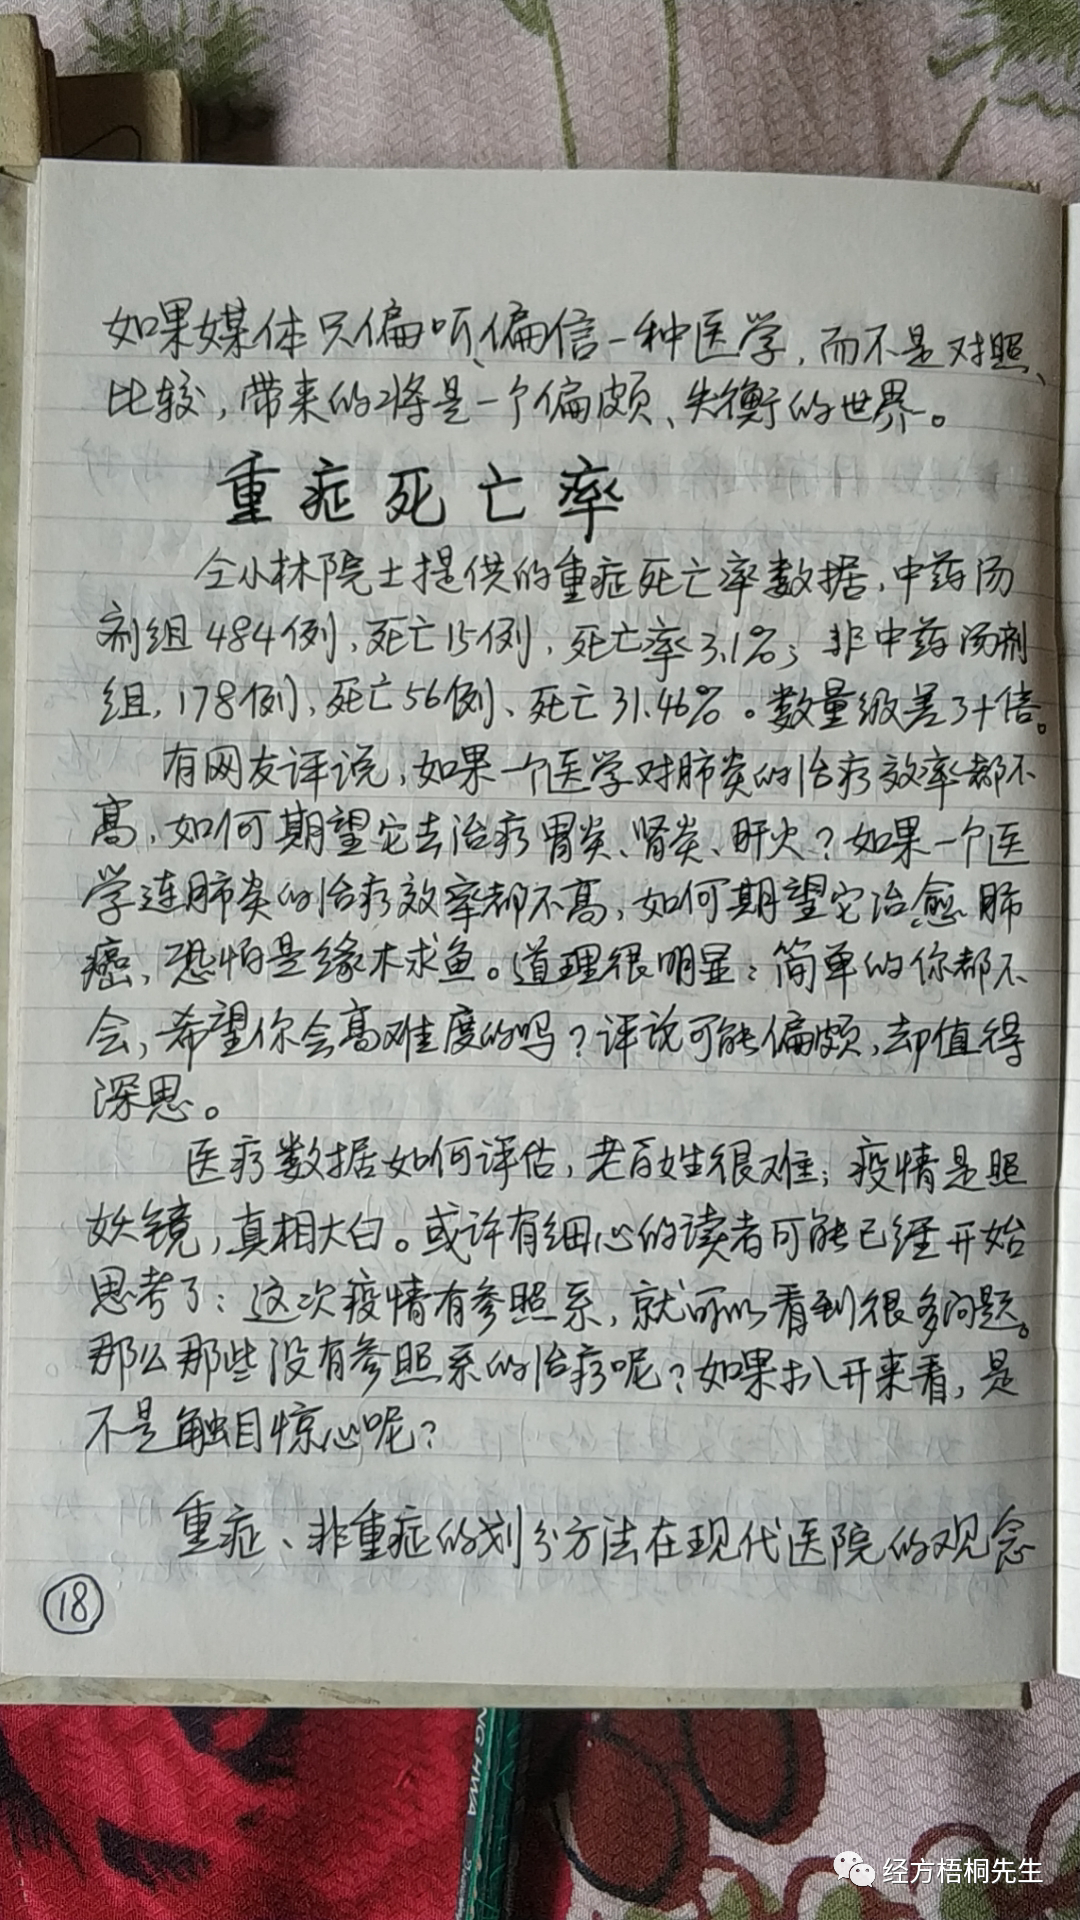 如果媒体只偏听、偏信一种医学，而不是对照、
比较，带来的将是一个偏颇、失衡的世界。
重症死亡率
仝小林院士提供的重症死亡率数据，中药汤
剂组484例，死亡15例，死亡率3.1%；非中药汤剂
组，178例，死亡56例、死亡31.46%。数量级差了十倍。
有网友评说，如果一个医学对肺炎的治疗效率都不
高，如何期望它去治疗胃炎、肾炎、肝火？如果一个医
学连肺炎的治疗效率都不高，如何期望它治愈肺
癌，恐怕是缘木求鱼。道理很明显：简单的你都不
会，希望你会高难度的吗？评说可能偏颇，却值得
深思。
医疗数据如何评估，老百姓很难；疫情是照
妖镜，真相大白。或许有细心的读者可能已经开始
思考了：这次疫情有参照系，就可以看到很多问题。
那么那些没有参照系的治疗呢？如果扒开来看，是
不是触目惊心呢？
重症、非重症的划分方法在现代医院的观念
18
NG HWA
经方梧桐先生